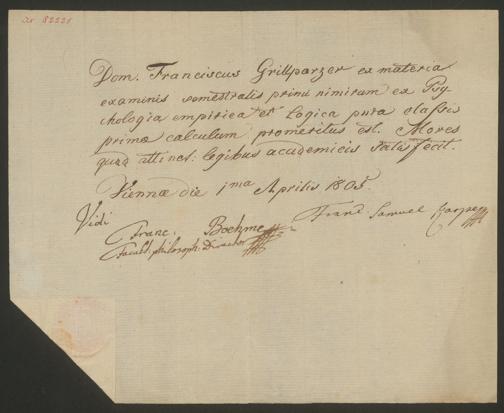 Dom. Franciscus Grillparzer ex materia
examinis semestralis primi nimirum ex Psy-
chologia empirica et Logica pura classis
primæ calculum promeritus est. Mores
quod attinet: legibus academicis satisfecit.
Viennæ die 1ma Aprilis 1805.
Vidi
Franc. Boehme
Facult: philosoph: Director
Franc. Samuel Karpe